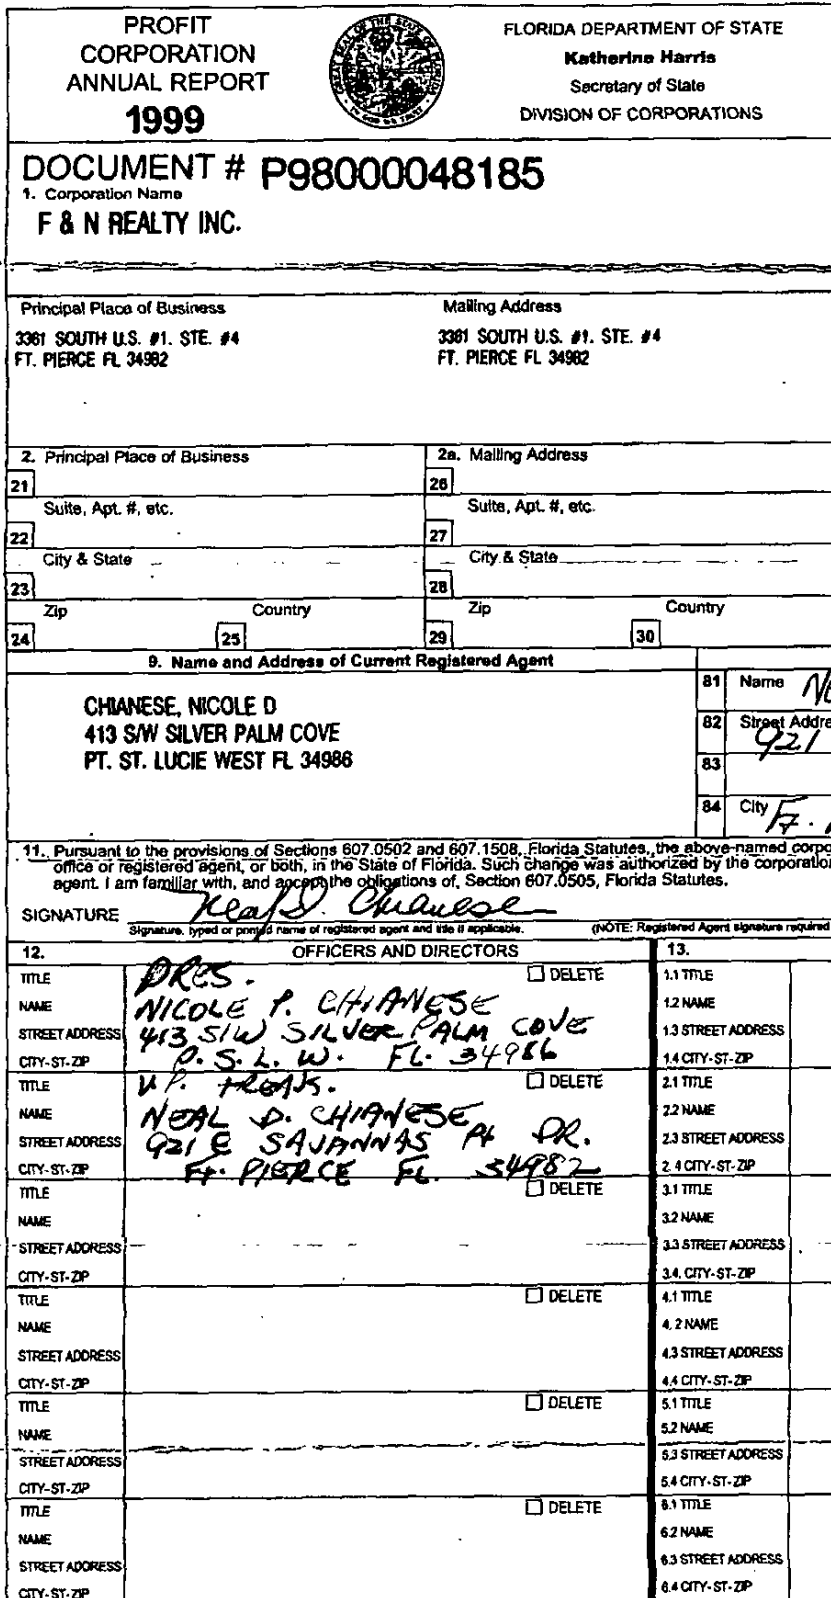 PROFIT
CORPORATION
ANNUAL REPORT
1999
FLORIDA DEPARTMENT OF STATE
Katherine Harris
Secretary of State
DIVISION OF CORPORATIONS
DOCUMENT # P98000048185
1. Corporation Name
F & N REALTY INC.
Principal Place of Business
Mailing Address
3361 SOUTH U.S. #1. STE. #4
FT. PIERCE FL 34982
3361 SOUTH U.S. #1. STE. #4
FT. PIERCE FL 34982
2. Principal Place of Business
2a. Mailing Address
21
26
Suite, Apt. #, etc.
Suite, Apt. #, etc.
22
27
City & State
City & State
23
28
Zip
Country
Zip
Country
24
25
29
30
9. Name and Address of Current Registered Agent
CHIANESE, NICOLE D
413 S/W SILVER PALM COVE
PT. ST. LUCIE WEST FL 34986
81 Name
82 Street Addre
921
83
84 City Ft.
11. Pursuant to the provisions of Sections 607.0502 and 607.1508, Florida Statutes, the above-named corpo
office or registered agent, or both, in the State of Florida. Such change was authorized by the corporation
agent. I am familiar with, and accept the obligations of, Section 607.0505, Florida Statutes.
SIGNATURE Neal D. Chianese
Signature, typed or printed name of registered agent and title if applicable.
(NOTE: Registered Agent signature required
12.
OFFICERS AND DIRECTORS
13.
TITLE PRES. DELETE
NAME NICOLE P. CHIANESE
STREET ADDRESS 413 S/W SILVER PALM COVE
CITY-ST-ZIP P.S.L.W. FL. 34986
1.1 TITLE
1.2 NAME
1.3 STREET ADDRESS
1.4 CITY-ST-ZIP
TITLE V.P. TREAS. DELETE
NAME NEAL D. CHIANESE
STREET ADDRESS 921 E SAVANNAS Pt DR.
CITY-ST-ZIP Ft. PIERCE FL. 34982
2.1 TITLE
2.2 NAME
2.3 STREET ADDRESS
2.4 CITY-ST-ZIP
TITLE DELETE
NAME
STREET ADDRESS
CITY-ST-ZIP
3.1 TITLE
3.2 NAME
3.3 STREET ADDRESS
3.4. CITY-ST-ZIP
TITLE DELETE
NAME
STREET ADDRESS
CITY-ST-ZIP
4.1 TITLE
4.2 NAME
4.3 STREET ADDRESS
4.4 CITY-ST-ZIP
TITLE DELETE
NAME
STREET ADDRESS
CITY-ST-ZIP
5.1 TITLE
5.2 NAME
5.3 STREET ADDRESS
5.4 CITY-ST-ZIP
TITLE DELETE
NAME
STREET ADDRESS
CITY-ST-ZIP
6.1 TITLE
6.2 NAME
6.3 STREET ADDRESS
6.4 CITY-ST-ZIP